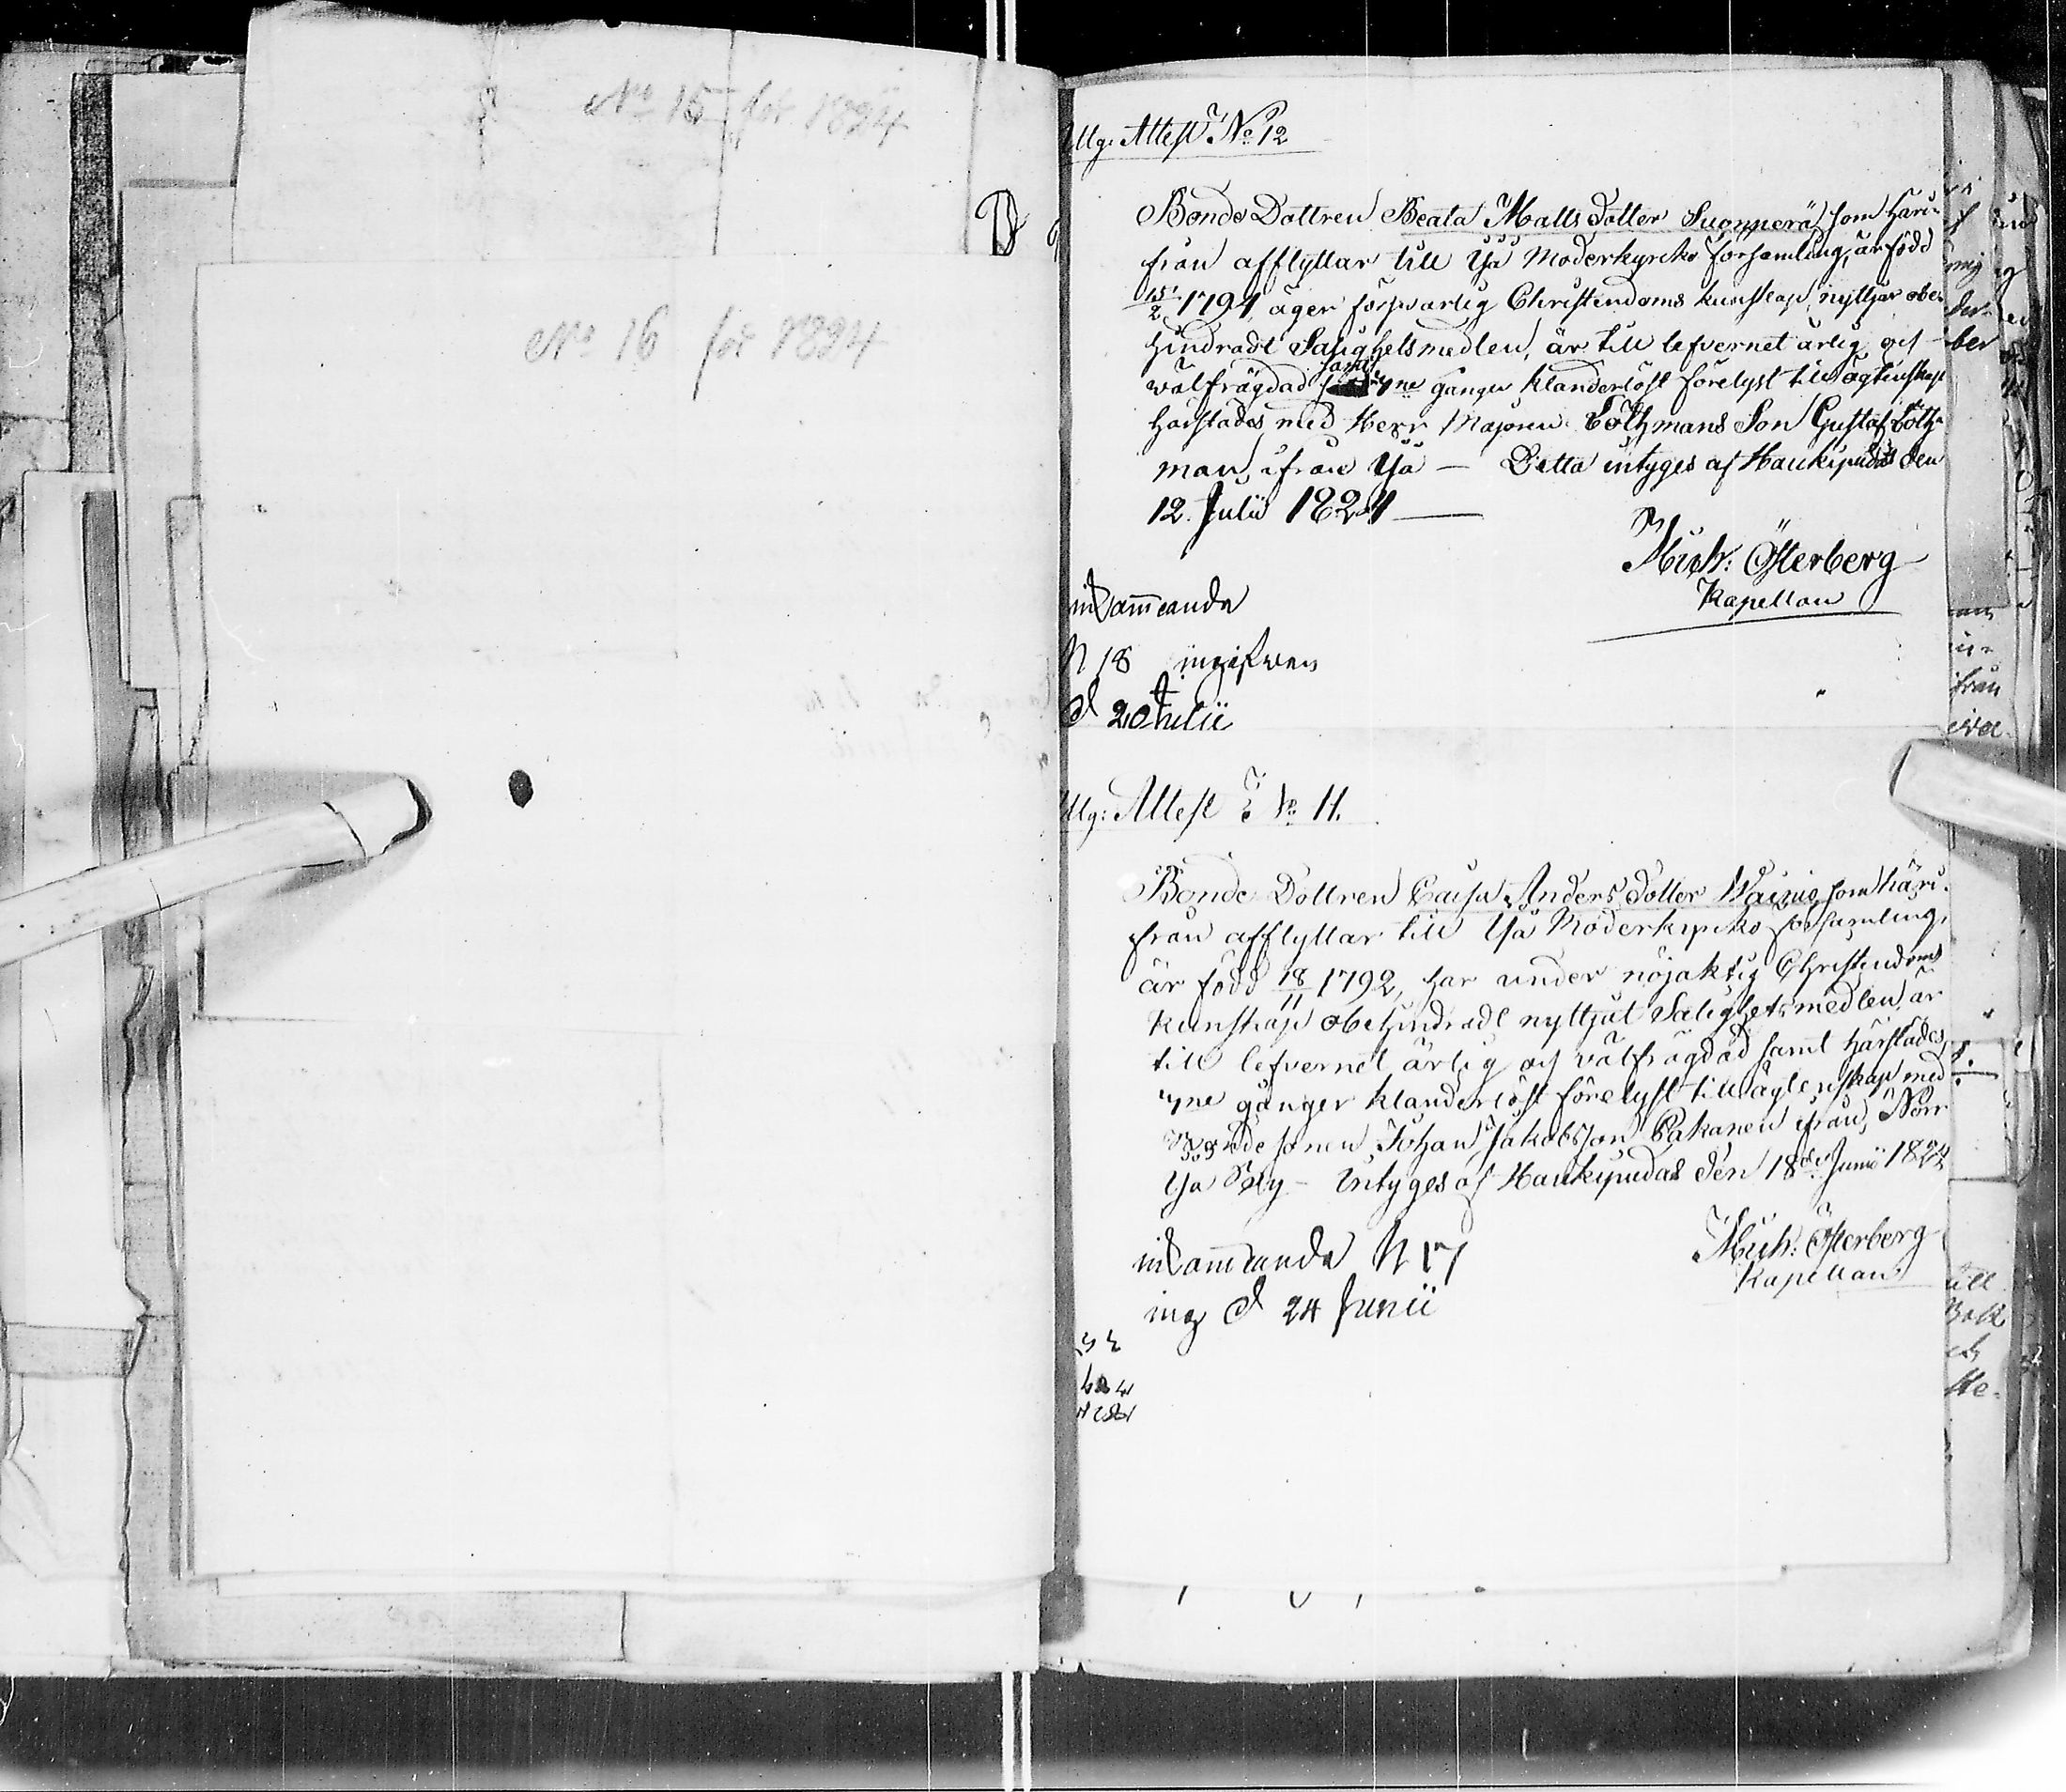 No 15 för 1824
No 16 för 1824
Utg: Attest No 12
Bonde Dottren Beata Matts Dotter Suonperä, som häri-
från afflyttar till Ijå Moderkyrcko församling, är född
15/2 1794, äger försvarlig Christendoms kunskap, nyttjar obe-
hindradt Salighetsmedlen, är till lefvernet ärlig och
wälfrägdad samt 3ne gånger klanderlöst förelyst till ägtenskap
härstädes med Herr Majoren Töthmans Son Gustaf Töth-
man, ifrån Ijå — Detta intyges af Haukipudas den
12. Julii 1824 —
Mich: Österberg
Kapellan
inkommande
N 18 ingifven
d 20 Julii
Utg: Attest No 11.
Bonde Dottren Caisa Anders Dotter Wainio, som häri-
från afflyttar till Ijå Moderkyrcko församling,
är född 18/11 1792, har under nöjaktig Christendoms
kunskap obehindradt nyttjat Salighetsmedlen, är
till lefvernet ärlig och välfrägdad samt härstädes
3ne gånger klanderlöst förelyst till ägtenskap med
Bonde sonen Johan Jakobsson Pakanen ifrån Norr
Ijå By — Intyges af Haukipudas den 18de Junii 1824
Mich: Österberg
Kapellan
inkommande N 17
ing d 24 Junii